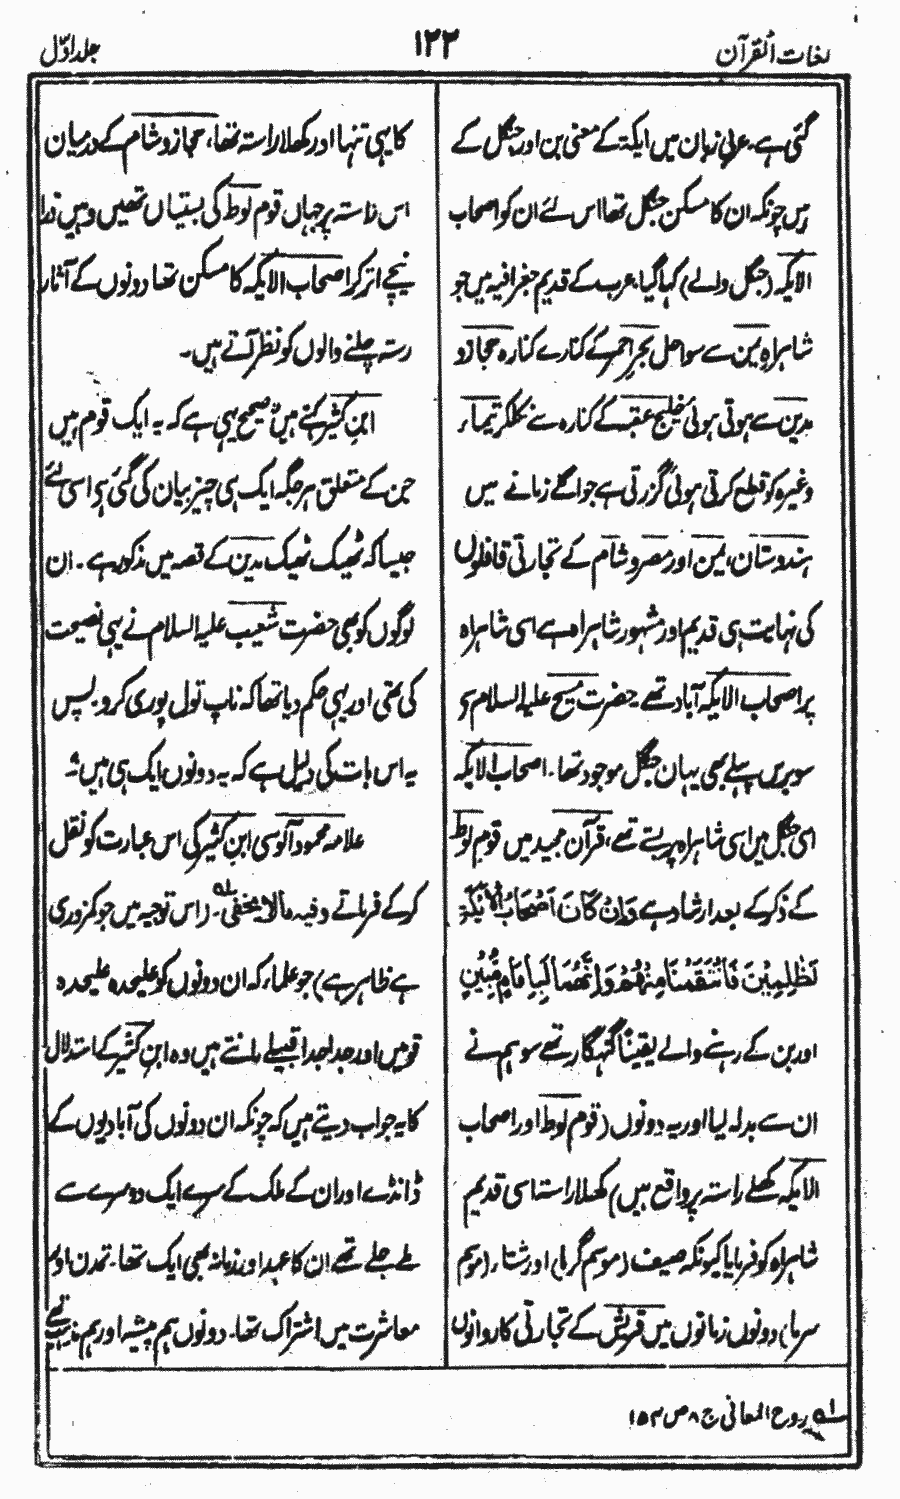 لغات القرآن
۱۲۳
جلد اوّل
گئی ہے۔ عربی زبان میں ایکۃ کے معنی بن اور جنگل کے
ہیں چونکہ ان کا مسکن جنگل تھا اس لئے ان کو اصحاب
الایکہ (جنگل والے) کہا گیا، عرب کے قدیم جغرافیہ میں جو
شاہراہِ یمن سے سواحل بحرِ احمر کے کنارے کنارہ حجاز و
مدین سے ہوتی ہوئی خلیج عقبہ کے کنارہ سے نکلکر تیماء
وغیرہ کو قطع کرتی ہوئی گزرتی ہے جو اگلے زمانے میں
ہندوستان، یمن اور مصر و شام کے تجارتی قافلوں
کی نہایت ہی قدیم اور مشہور شاہراہ ہے اسی شاہراہ
پر اصحاب الایکہ آباد تھے۔ حضرت مسیح علیہ السلام سے
سو برس پہلے بھی یہاں جنگل موجود تھا۔ اصحاب الایکہ
اسی جنگل میں اسی شاہراہ پر بستے تھے، قرآن مجید میں قوم لوط
کے ذکر کے بعد ارشاد ہے وَاِنْ كَانَ اَصْحَابُ الْاَيْكَةِ
لَظٰلِمِيْنَ فَانْتَقَمْنَا مِنْهُمْ وَاِنَّهُمَا لَبِاِمَامٍ مُّبِيْنٍ
اور بن کے رہنے والے یقیناً گنہگار تھے سو ہم نے
ان سے بدلہ لیا اور یہ دونوں (قوم لوط اور اصحاب
الایکہ کھلے راستہ پر واقع ہیں) کھلا راستہ اسی قدیم
شاہراہ کو فرمایا کیونکہ صیف (موسم گرما) اور شتاء (موسم
سرما) دونوں زمانوں میں قریش کے تجارتی کاروانوں
کا یہی تنہا اور کھلا راستہ تھا، حجاز و شام کے درمیان
اس راستہ پر جہاں قوم لوط کی بستیاں تھیں وہیں ذرا
نیچے اتر کر اصحاب الایکہ کا مسکن تھا دونوں کے آثار
رستہ چلنے والوں کو نظر آتے ہیں۔
ابن کثیر کہتے ہیں صحیح یہی ہے کہ یہ ایک قوم ہیں
جن کے متعلق ہر جگہ ایک ہی چیز بیان کی گئی ہے اسی لئے
جیسا کہ ٹھیک ٹھیک مدین کے قصہ میں مذکور ہے۔ ان
لوگوں کو بھی حضرت شعیب علیہ السلام نے یہی نصیحت
کی تھی اور یہی حکم دیا تھا کہ ناپ تول پوری کرو۔ بس
یہ اس بات کی دلیل ہے کہ یہ دونوں ایک ہی ہیں
علامہ محمود آلوسی ابن کثیر کی اس عبارت کو نقل
کر کے فرماتے وفیہ مالا یخفی ۱ (اس توجیہ میں جو کمزوری
ہے ظاہر ہے) جو علماء کہ ان دونوں کو علیحدہ علیحدہ
قومیں اور جدا جدا قبیلے مانتے ہیں وہ ابن کثیر کے استدلال
کا یہ جواب دیتے ہیں کہ چونکہ ان دونوں کی آبادیوں کے
ڈانڈے اور ان کے ملک کے سرے ایک دوسرے سے
ملے جلے تھے ان کا عہد اور زمانہ بھی ایک تھا۔ تمدن اور
معاشرت میں اشتراک تھا۔ دونوں ہم پیشہ اور ہم مذہب تھے
۱ روح المعانی ج ۸ ص ۱۵۳